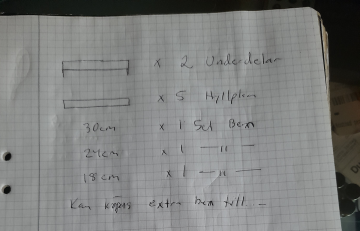 x 2 Underdelar
x 5 Hyllplan
30cm x 1 Set Ben
24cm x 1 —11—
18cm x 1 —11—
Kan köpas extra ben till –